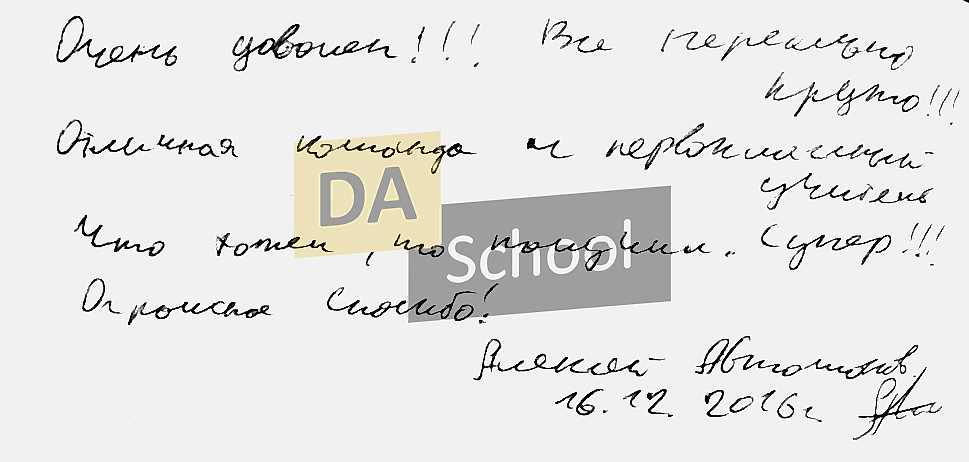 Очень доволен!!! Все нереально
круто!!!
Отличная команда и первоклассный
учитель
DA
Что хотел, то получил. Супер!!!
School
Огромное спасибо!
Алексей
16.12.2016г.